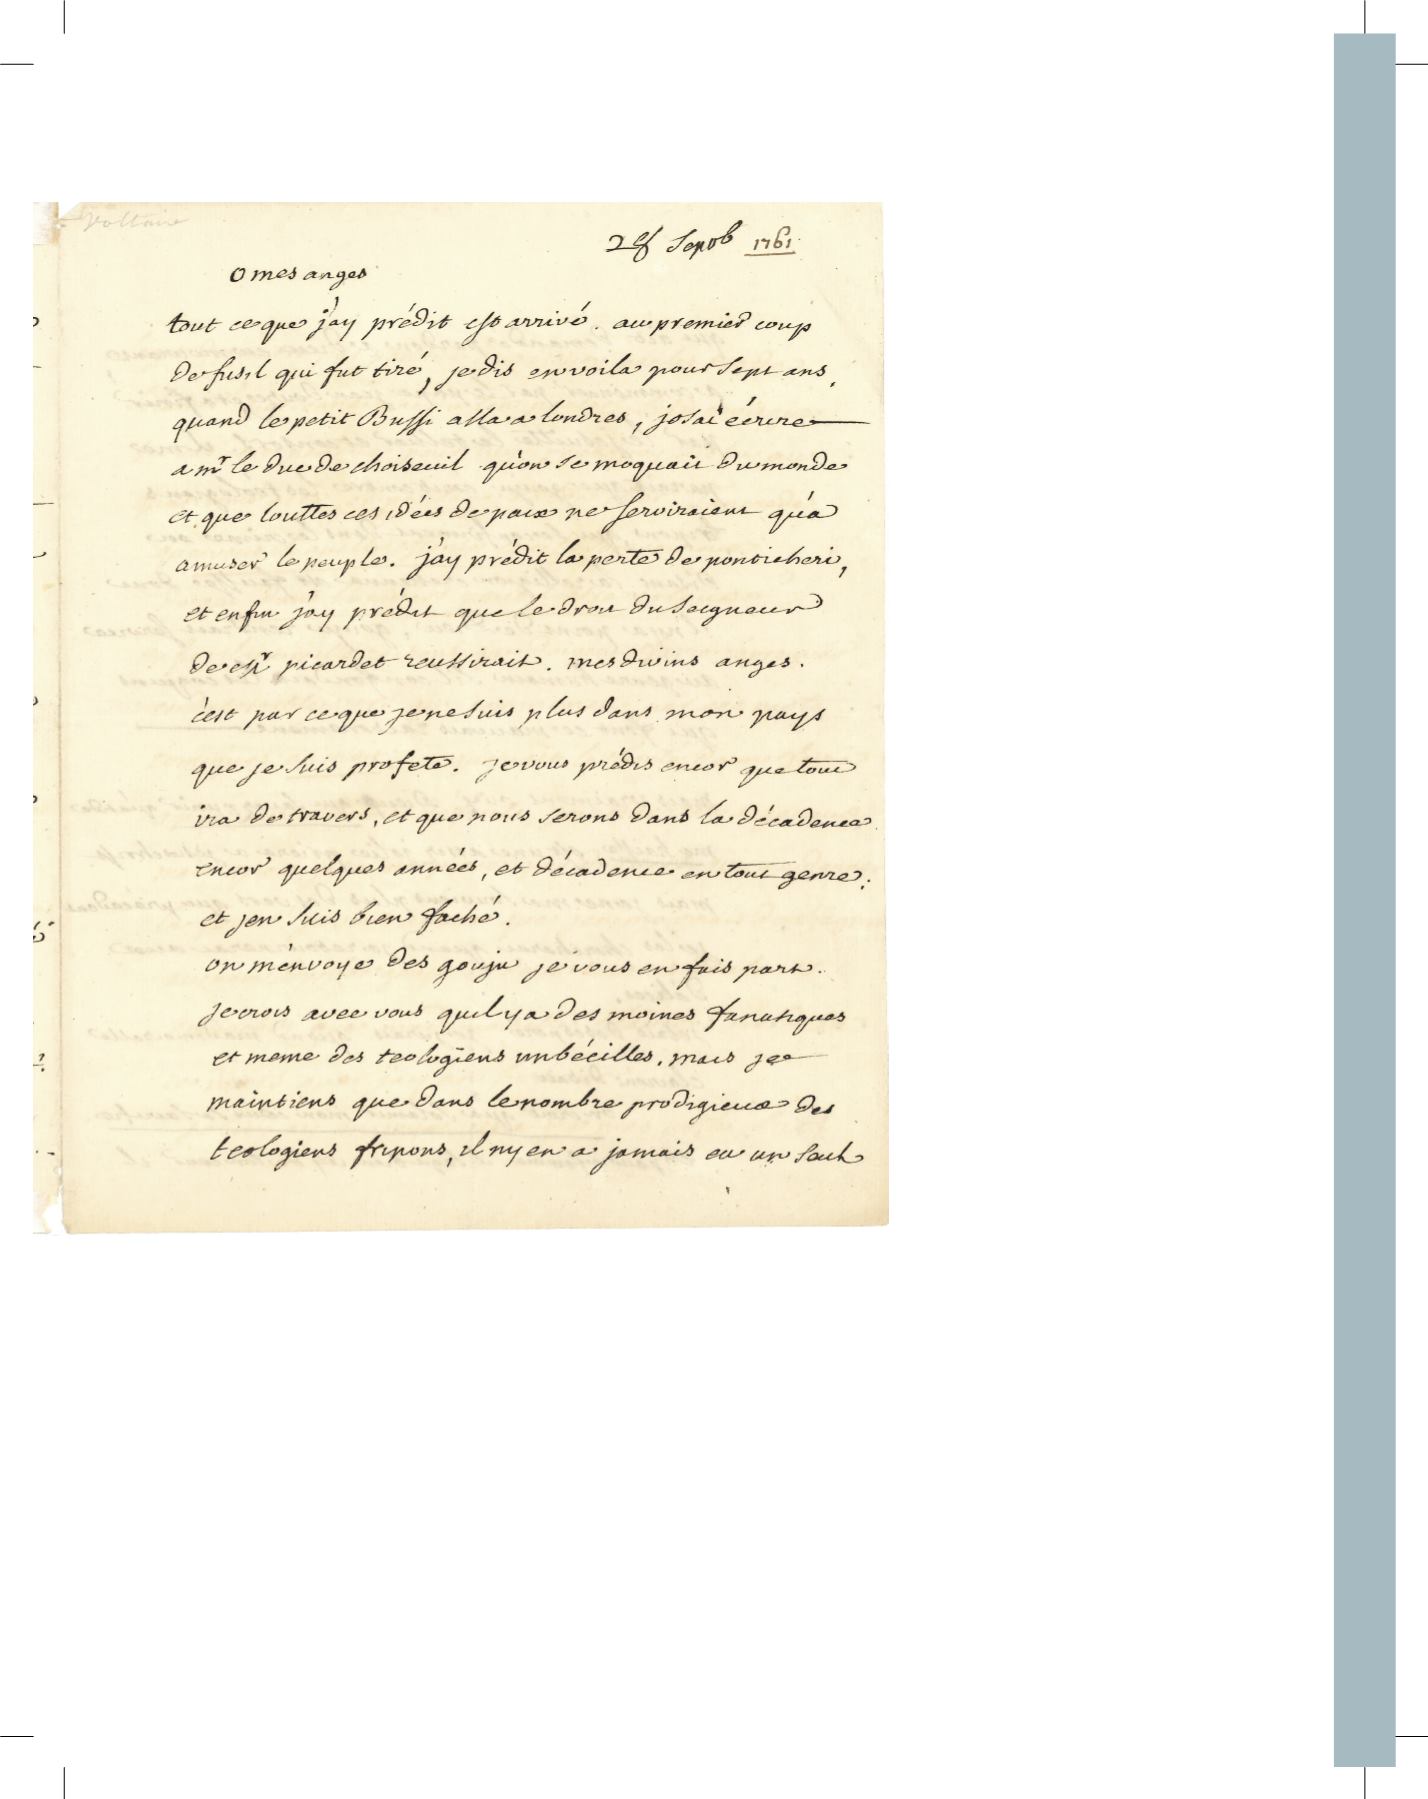 Voltaire
28 Sepb 1761.
o mes anges
tout ce que j'ay prédit est arrivé. au premier coup
de fusil qui fut tiré, je dis en voila pour sept ans,
quand le petit Bussi alla a londres, j'osai écrire
a mr le duc de choiseuil qu'on se moquait du monde
et que touttes ces idées de paix ne serviraient qu'a
amuser le peuple. j'ay prédit la perte de ponticheri,
et enfin j'ay prédit que le droit du seigneur
de mr picardet reussirait. mes divins anges.
c'est par ce que je ne suis plus dans mon pays
que je suis profete. je vous prédis encor que tout
ira de travers, et que nous serons dans la décadence
encor quelques années, et décadence en tout genre;
et j'en suis bien faché.
on m'envoye des gouju je vous en fais part.
je crois avec vous qu'il y a des moines fanatiques
et meme des teologiens imbécilles. mais je
maintiens que dans le nombre prodigieux des
teologiens fripons, il n'y en a jamais eu un seul